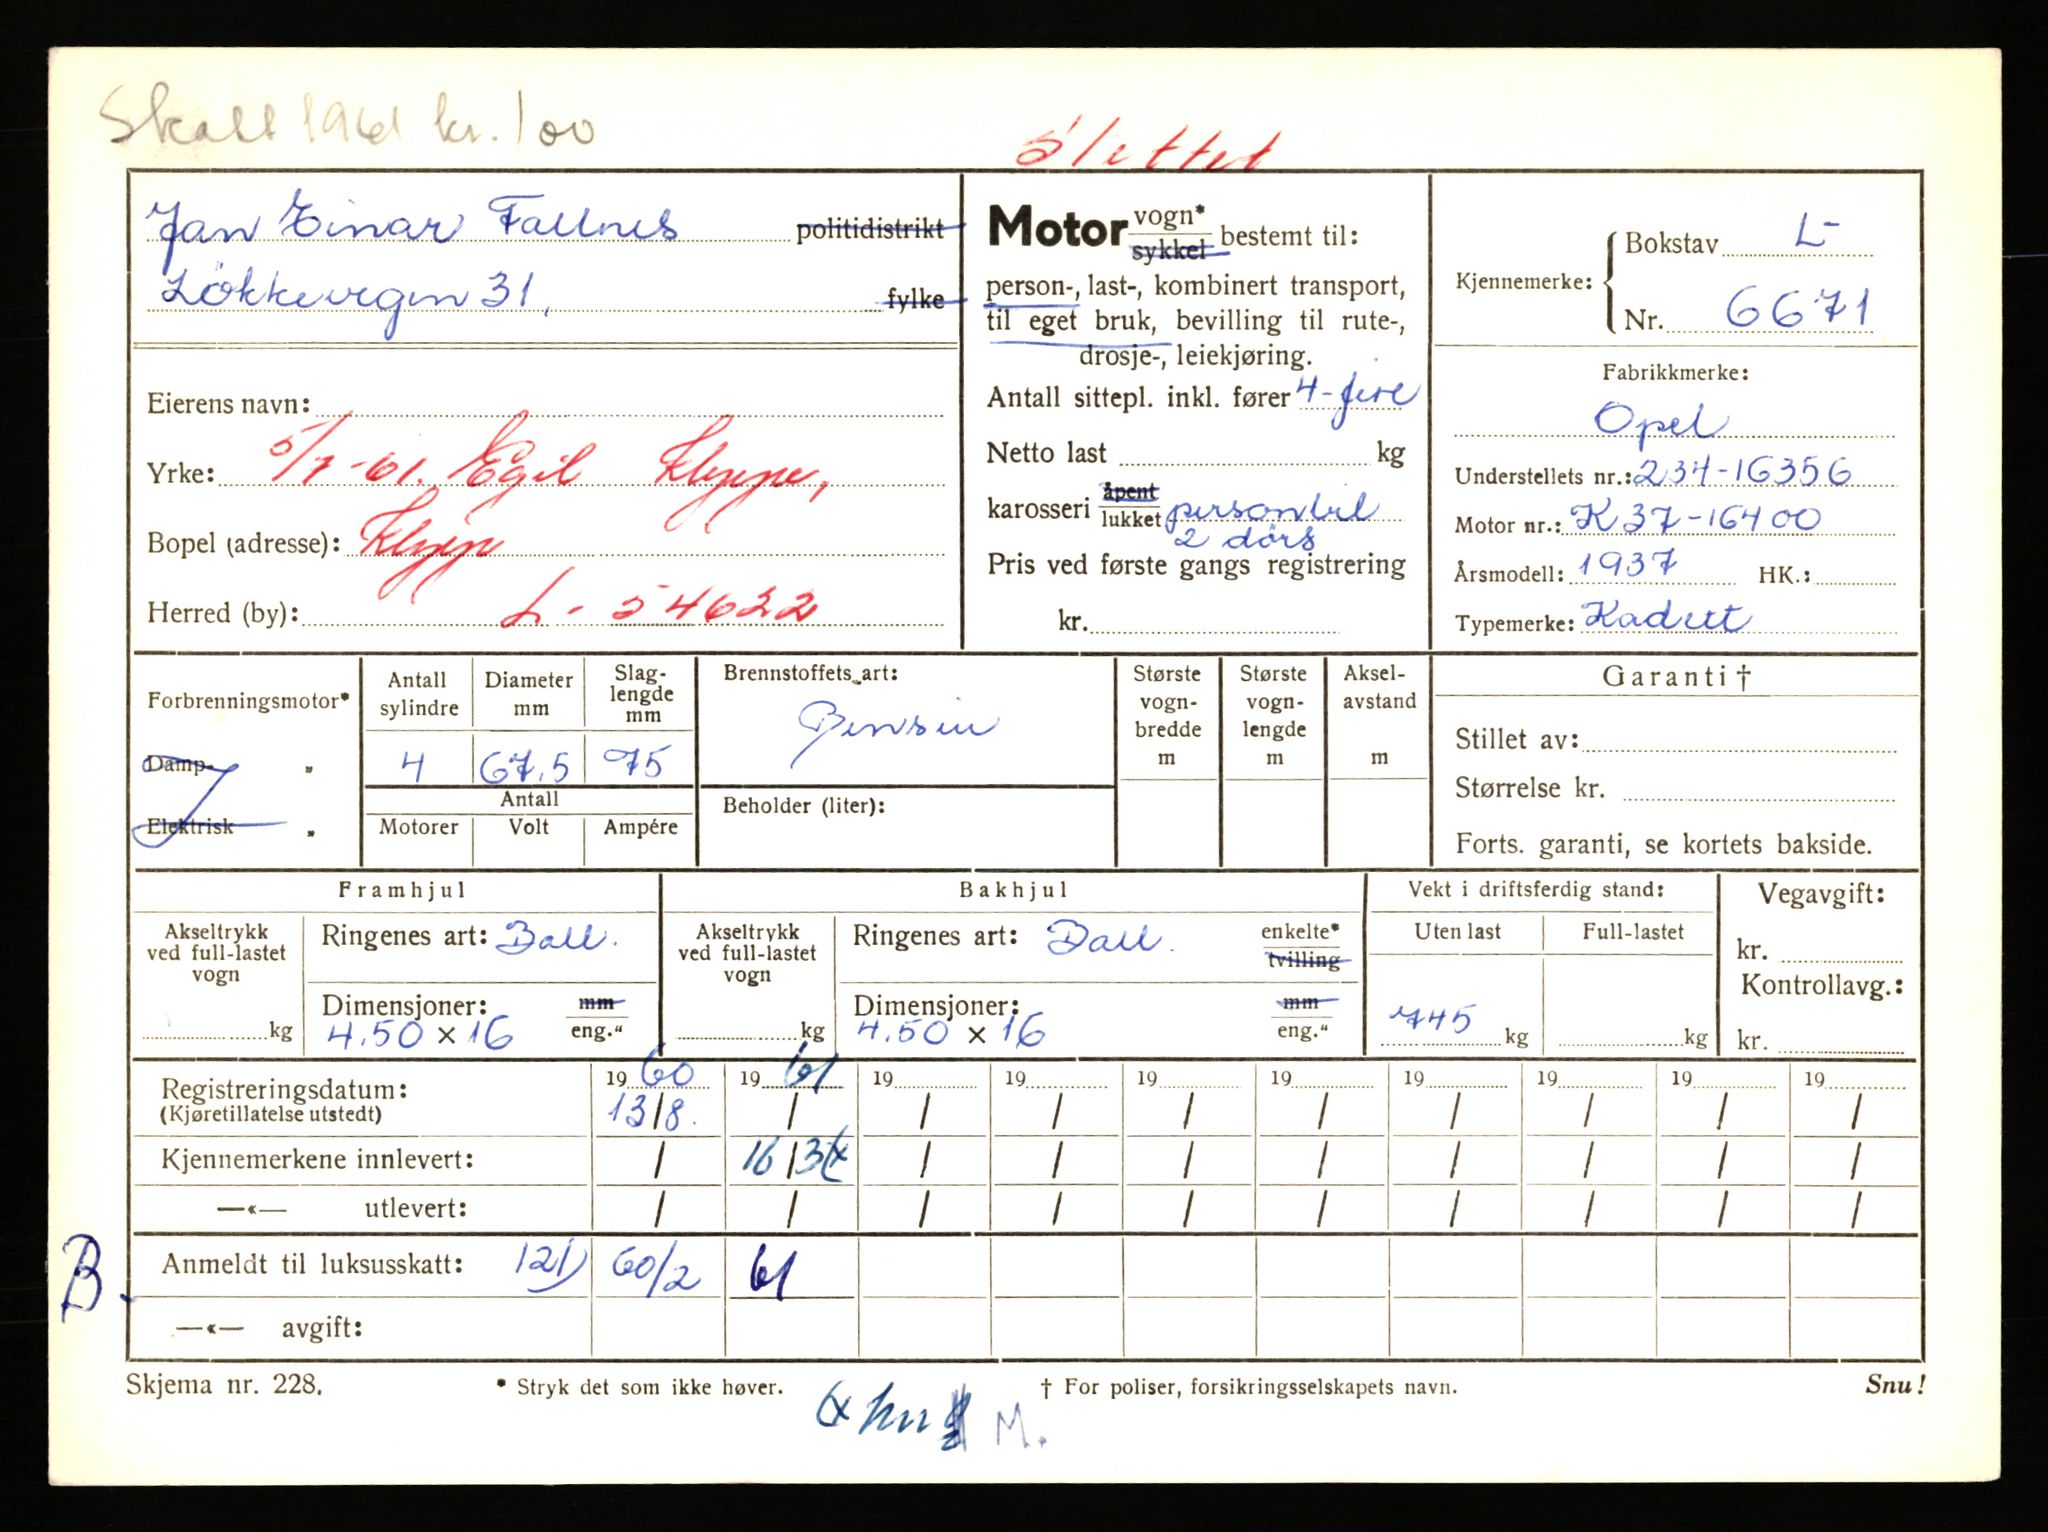 Skatt 1961 kr. 100
Slettet
Jan Einar Fallnes politidistrikt
Lökkevegen 31, fylke
Eierens navn:
Yrke: 5/7-61. Egil Kleppe,
Bopel (adresse): Klepp
Herred (by): L - 54622
Motor vogn* sykkel bestemt til:
person-, last-, kombinert transport,
til eget bruk, bevilling til rute-,
drosje-, leiekjøring.
Antall sittepl. inkl. fører 4-fire
Netto last kg
karosseri åpent lukket personbil
2 dørs
Pris ved første gangs registrering
kr.
Kjennemerke: Bokstav L-
Nr. 6671
Fabrikkmerke:
Opel
Understellets nr.: 234-16356
Motor nr.: K37-16400
Årsmodell: 1937 HK.:
Typemerke: Kadett
Forbrenningsmotor*
Damp- „
Elektrisk „
Antall sylindre Diameter mm Slag-lengde mm
4 67,5 75
Antall
Motorer Volt Ampére
Brennstoffets art:
Bensin
Beholder (liter):
Største vogn-bredde m Største vogn-lengde m Aksel-avstand m
Garanti †
Stillet av:
Størrelse kr.
Forts. garanti, se kortets bakside.
Framhjul
Akseltrykk ved full-lastet vogn kg
Ringenes art: Ball.
Dimensjoner: mm
4.50 x 16 eng."
Bakhjul
Akseltrykk ved full-lastet vogn kg
Ringenes art: Ball. enkelte* tvilling
Dimensjoner: mm
4.50 x 16 eng."
Vekt i driftsferdig stand:
Uten last Full-lastet
745 kg kg
Vegavgift:
kr.
Kontrollavg.:
kr.
19 60 19 61 19 19 19 19 19 19 19 19
Registreringsdatum: 13/8. / / / / / / / / /
(Kjøretillatelse utstedt)
Kjennemerkene innlevert: / 16/3 / / / / / / / /
—«— utlevert: / / / / / / / / / /
B.
Anmeldt til luksusskatt: 121) 60/2 61
—«— avgift:
Skjema nr. 228. * Stryk det som ikke høver. † For poliser, forsikringsselskapets navn. Snu!
M.